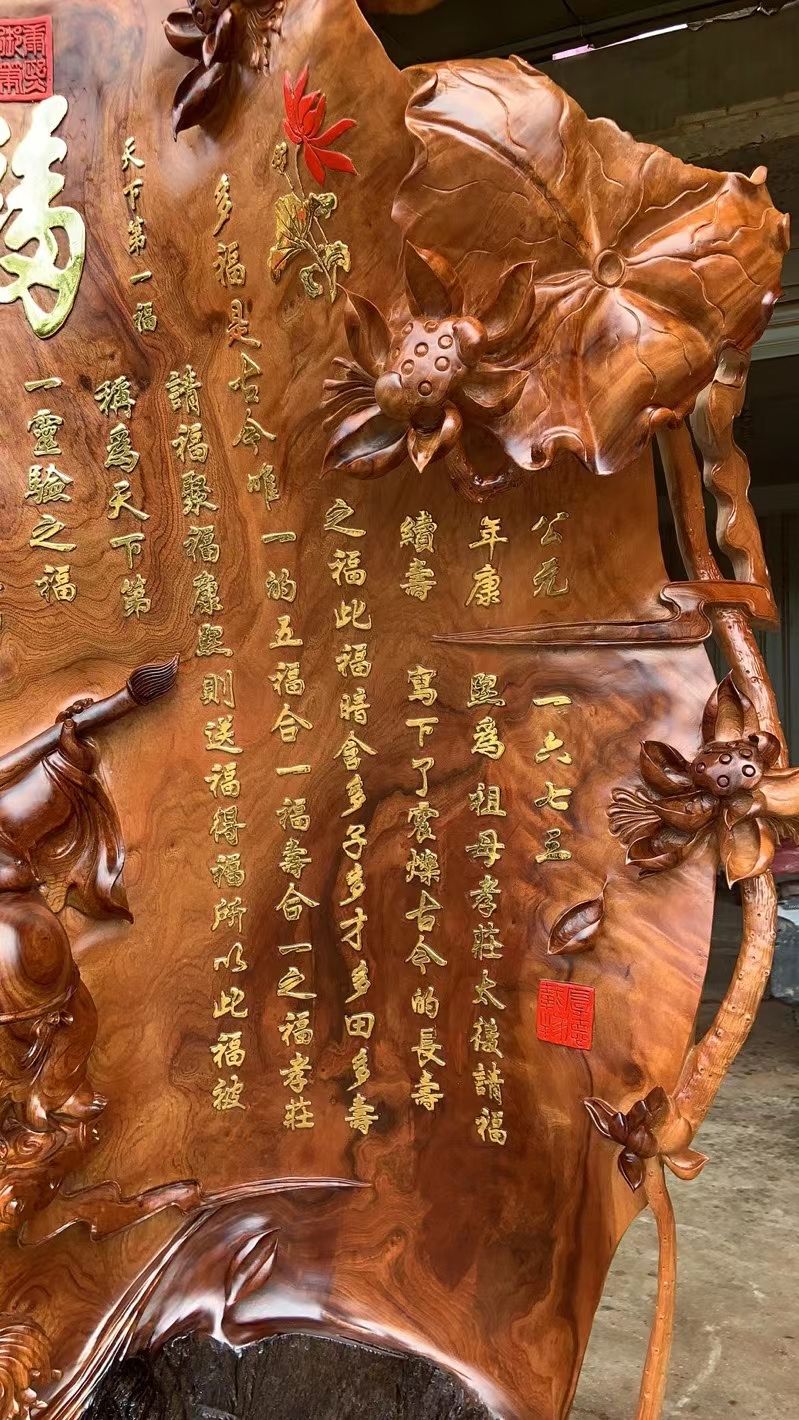 公元一六七三
年康熙爲祖母孝莊太後請福
續壽寫下了震爍古今的長壽
之福此福暗含多子多才多田多壽
多福是古今唯一的五福合一福壽合一之福孝莊
請福聚福康熙則送福得福所以此福被
稱爲天下第
一靈驗之福
天下第一福
福
厚德載物